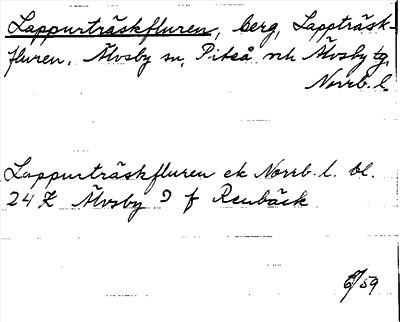 Lappurträskfluren, berg, Lappträsk-
fluren. Älvsby sn, Piteå och Älvsby tg,
Norrb. l.
Lappurträskfluren ek Norrb. l. bl.
24 K Älvsby 9 f Renbäck
59